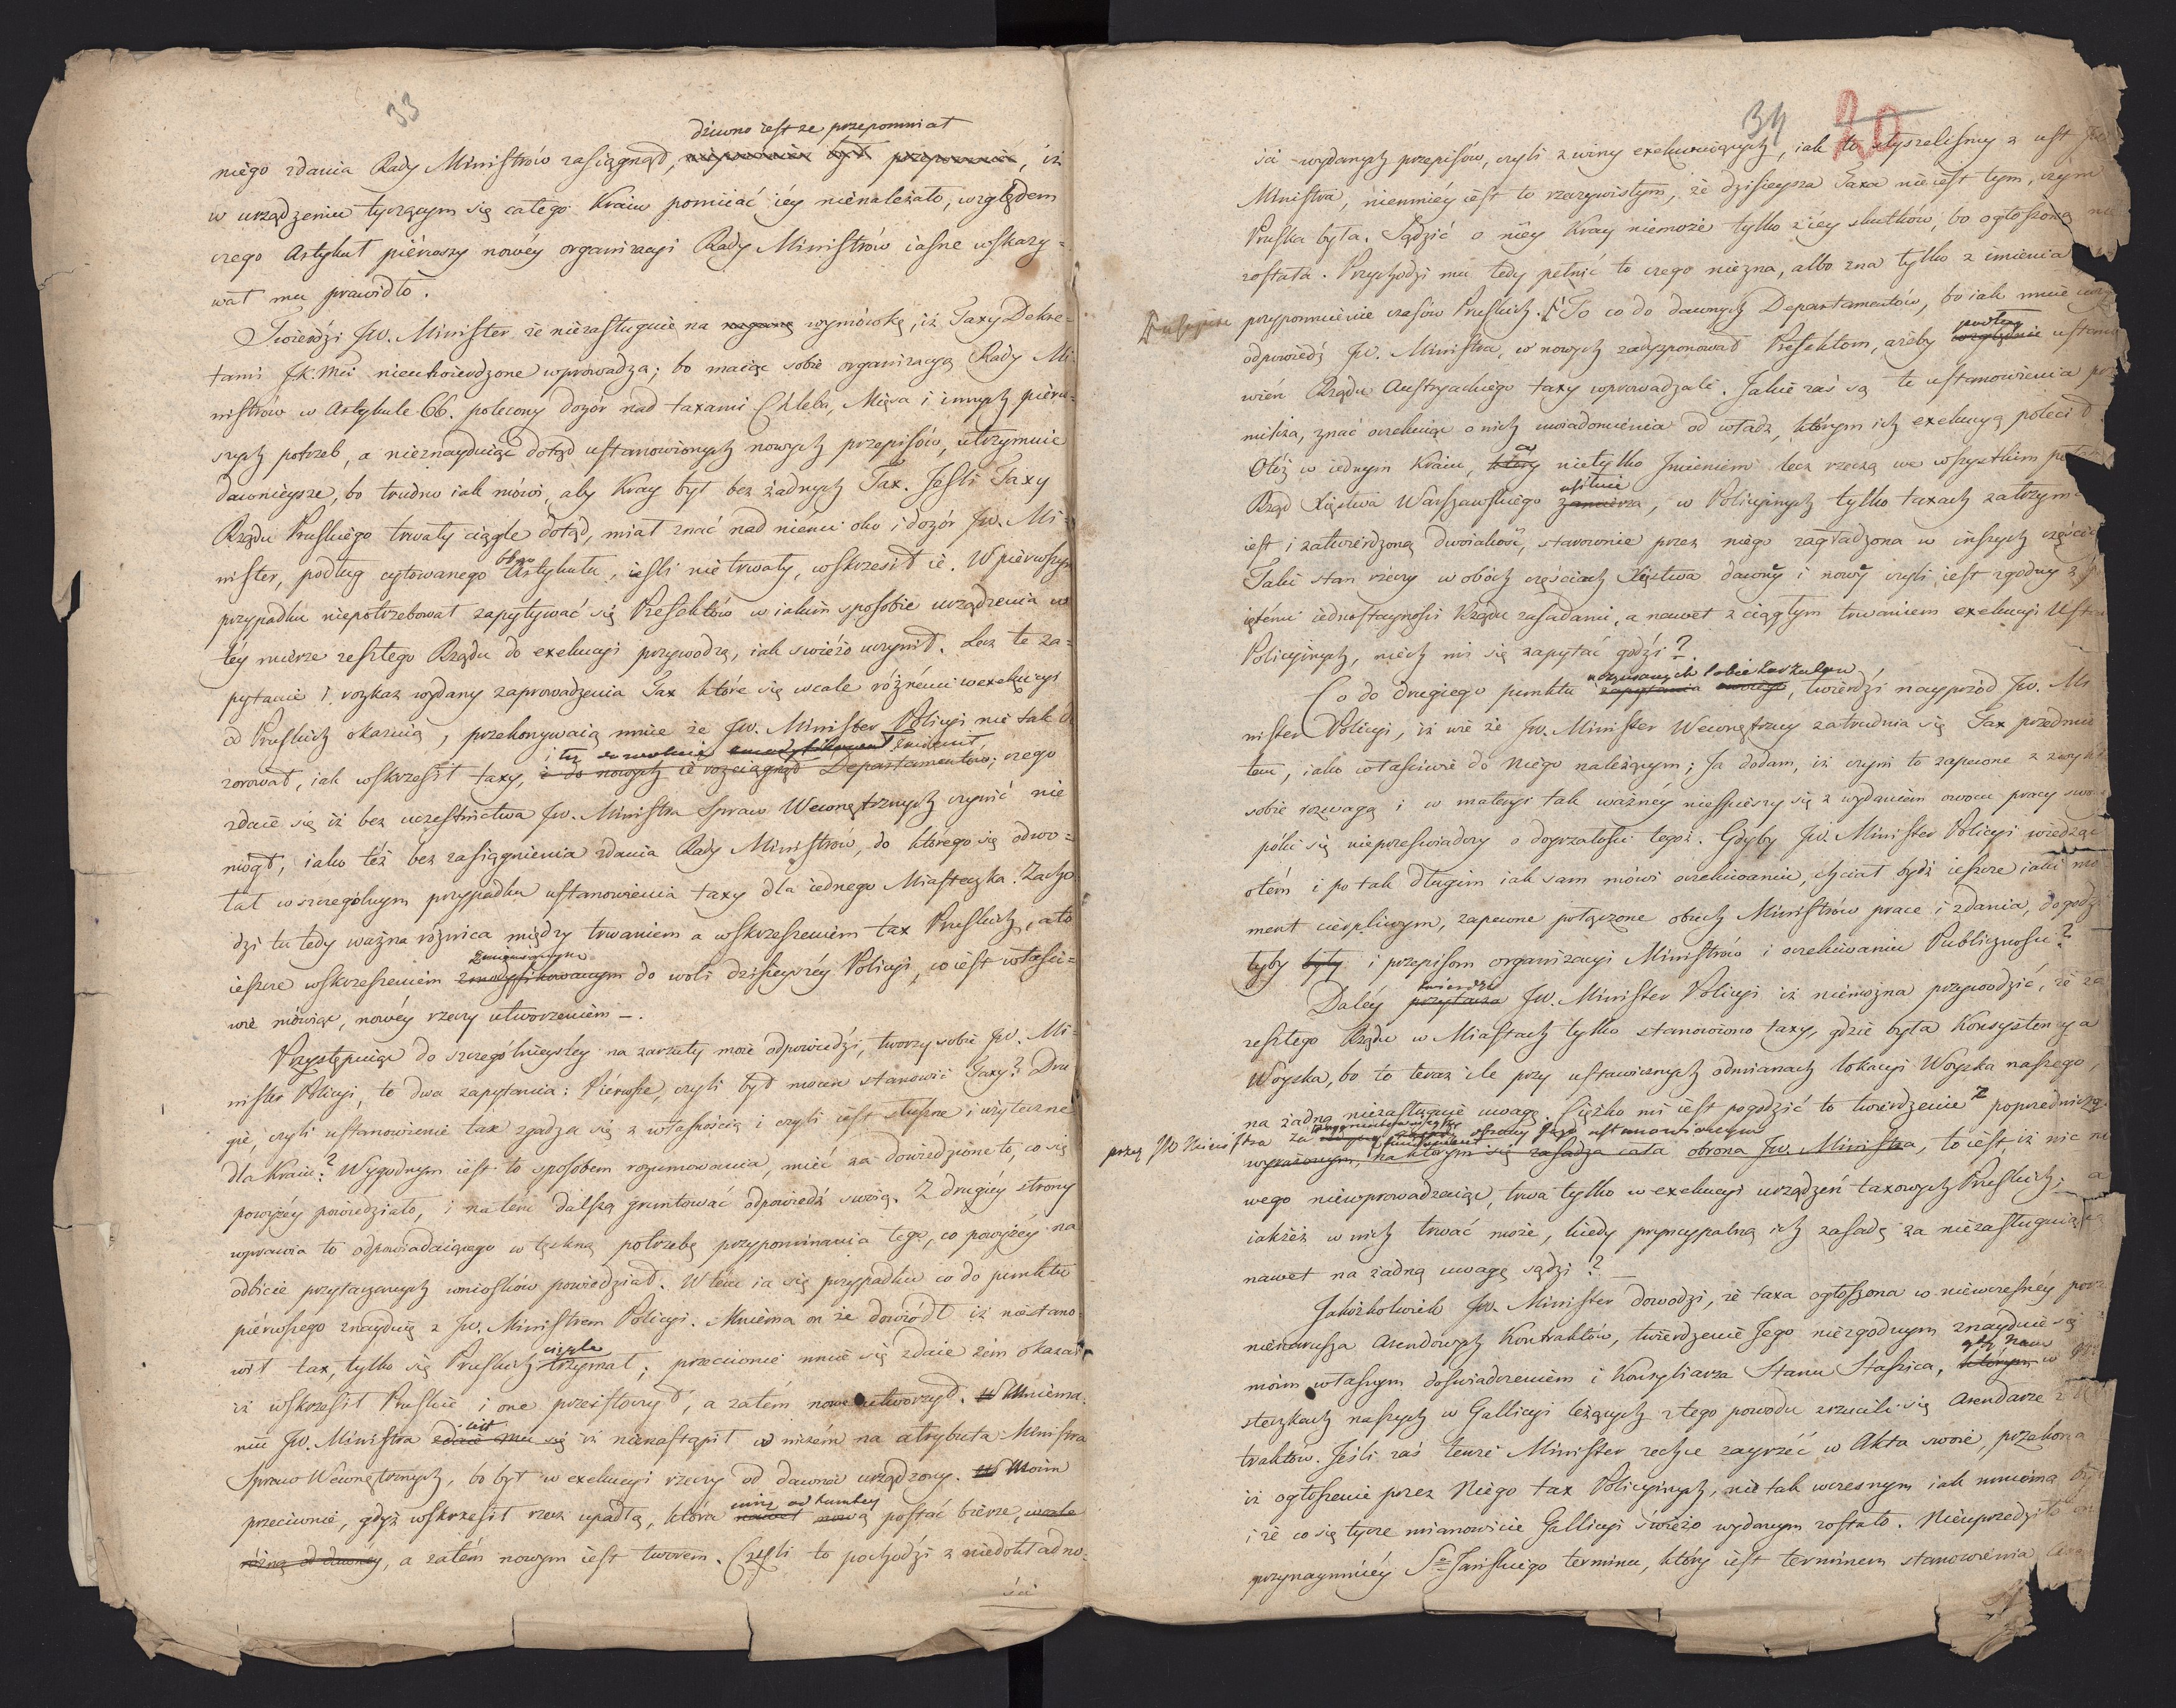 33
dziwno iest że przepomniał
niego zdania Rady Ministrów zasiągnąć, był, iż
w urządzeniu tyczącym się całego Kraiu pomiiać iéy nienależało, względem
czego Artykuł piérwszy nowéy organizacyi Rady Ministrów iasne wskazy=
wał mu prawidło.
Twierdzi Jw. Minister że niezasługuie na naganę wymówkę, iż Taxy Dekre=
tami JK. Mci nieutwierdzone wprowadza; bo maiąc sobie organizacyą Rady Mi=
nistrów w Artykule 66. polecony dozór nad taxami Chleba, Mięsa i innych piérw=
szych potrzeb, a nieznayduiąc dotąd ustanowionych nowych przepisów, utrzymuie
dawnieysze, bo trudno iak mówi, aby Kray był bez żadnych Tax. Jeśli Taxy
Rządu Pruskiego trwały ciągle dotąd, miał znać nad niemi oko i dozór Jw. Mi=
nister, podług cytowanego Artykułu, ieśli nie trwały, wskrzesił ie. W piérwszym
przypadku niepotrzebował zapytywać się Prefektów w iakim sposobie urządzenia w
téy mierze zeszłego Rządu do exekucyi przywodzą, iak świéżo uczynił. Lecz te za=
pytanie i rozkaz wydany zaprowadzenia Tax które się wcale różnémi w exekucyi
od Pruskich okazuią, przekonywaią mnie że Jw. Minister Policyi nie tak
i tę dowolnie zmienił,
zorował, iak wskrzesił taxy, i do nowych ie rozciągnął Departamentów; czego
zdaie się iż bez uczestnictwa Jw. Ministra Spraw Wewnętrznych czynić nie
mógł, iako też bez zasiągnienia zdania Rady Ministrów, do którego się odwo=
łał w szczególnym przypadku ustanowienia taxy dla iednego Miasteczka. Zacho
dzi tu tedy ważna różnica między trwaniem a wskrzeszeniem tax Pruskich, a to
zmienionym
ieszcze wskrzeszeniem zmodyfikowanym do woli dzisieyszéy Policyi, co iest właści=
wie mówiąc, nowéy rzeczy utworzeniem -.
Przystępuiąc do szczególnieyszey na zarzuty moie odpowiedzi, tworzy sobie Jw. Mi=
nister Policyi, te dwa zapytania: Piérwsze, czyli był mocen stanowić Taxy? Dru
gie, czyli ustanowienie tax zgadza się z własnością i czyli iest słuszne i użyteczne
dla Kraiu? Wygodnym iest to sposobem rozumowania, mieć za dowiedzione to, co się
powyżéy powiedziało, i na tém dalszą gruntować odpowiedź swoią. Z drugiéy strony
wprawia to odpowiadaiącego w tęskną potrzebę przypominania tego, co powyżéy na
odbicie przytaczanych wniosków powiedział. W tém ia się przypadku co do punktu
piérwszego znayduię z Jw. Ministrem Policyi. Mniéma on że dowiódł iż nie stano=
ciągle
wił tax, tylko się Pruskich trzymał; przeciwnie mnie się zdaie żem okazał
iż wskrzesił Pruskie i one przeistoczył, a zatém nowe utworzył. Mniéma=
iest
niu Jw. Ministra zdaie mu się iż nienastąpił w niczém na atrybuta Ministra
Spraw Wewnętrznych, bo był w exekucyi rzeczy od dawna urządzoney. Moim
inną od tamtey
przeciwnie, gdyż wskrzesił rzecz upadłą, która nawet nową postać bierze, wcale
różną od dawnéy, a zatém nowym iest tworem. Czyli to pochodzi z niedokładno=
ści
34 20
ści wydanych przepisów, czyli z winy exekwuiących, iak to słyszeliśmy z ust
Ministra, niemniéy iest to rzeczywistym, że dzisieysza Taxa nie iest tym, czym
Pruska była. Sądzić o niéy Kray niemoże tylko z iey skutków, bo ogłoszoną nie
została. Przychodzi mu tedy pełnić to czego niezna, albo zna tylko z imienia
przypomnienie czasów Pruskich. To co do dawnych Departamentów, bo iak mnie uczy
podług
odpowiedź Jw. Ministra, w nowych zadysponował Prefektom, ażeby względnie ustano
wień Rządu Austryackiego taxy wprowadzali. Jakie zaś są te ustanowienia
milcza, znać oczekuiąc o nich uwiadomienia od władz, którym ich exekucyą polecił
Otóż w iednym Kraiu, który nietylko Jmieniem lecz rzeczą we wszystkim
usiłuie
Rząd Xięstwa Warszawskiego zamierza, w Policyinych tylko taxach zatrzyma
iest i zatwierdzoną dwoiakość, starownie przez niego zagładzona w inszych częściach
Taki stan rzeczy w obóch częściach Xięstwa dawnéy i nowéy czyli iest zgodny z
iętémi iednostayności Rządu zasadami, a nawet z ciągłym trwaniem exekucyi Ustaw
Policyinych, niech mi się zapytać godzi?
uczynionych sobie zarzutów
Co do drugiego punktu zapytania swoiego, twierdzi nayprzód Jw. Mi
nister Policyi, iż wie że Jw. Minister Wewnętrzny zatrudnia się Tax przedmio
tem, iako właściwie do Niego należącym; Ja dodam, iż czyni to zapewne z zwykłą
sobie rozwagą i w materyi tak ważnéy nieśpieszy się z wydaniem owocu pracy swoiéy
póki się nieprzeświadczy o doyrzałości tegoż. Gdyby Jw. Minister Policyi wiedząc
otém i po tak długim iak sam mówi oczekiwaniu, chciał bydź ieszcze iaki mo
ment cierpliwym, zapewne połączone obuch Ministrów prace i zdania, dogodzi
łyby były i przepisom organizacyi Ministrów i oczekiwaniu Publiczności?
twierdzi
Daléy przytacza Jw. Minister Policyi iż niemożna przywodzić, że za
zeszłego Rządu w Miastach tylko stanowiono taxy, gdzie była Konsystencya
Woyska, bo to teraz ile przy ustawicznych odmianach lokacyi Woyska naszego,
na żadną niezasługuie uwagę. Ciężko mi iest pogodzić to twierdzenie z poprzedniczo
przez Jw Ministra za obrony Jego ustanowionym
wyrażonym, na którym się zasadza cała obrona Jw. Ministra, to iest, iż nic no
wego niewprowadzaiąc, trwa tylko w exekucyi urządzeń taxowych Pruskich; a
iakżeż w nich trwać może, kiedy pryncypalną ich zasadę za niezasługuiącą
nawet na żadną uwagę sądzi?
Jakożkolwiek Jw. Minister dowodzi, że taxa ogłoszona w niewczesnéy porze
nienarusza Arendownych Kontraktów, twierdzenie Jego niezgodnym znayduie się z
gdy nam
moim własnym doświadczeniem i Konsyliarza Stanu Staszica, którym w
steczkach naszych w Gallicyi leżących z tego powodu zrzucili się Arendarze z
traktów. Jeśli zaś tenże Minister zechce zayrzéć w Akta swoie, przekona
iż ogłoszenie przez Niego tax Policyinych, nie tak wczesnym iak mniéma
i że co się tycze mianowicie Gallicyi świéżo wydanym zostało. Nieuprzedziło
przynaymniéy Sgo Jańskiego terminu, który iest terminem stanowienia